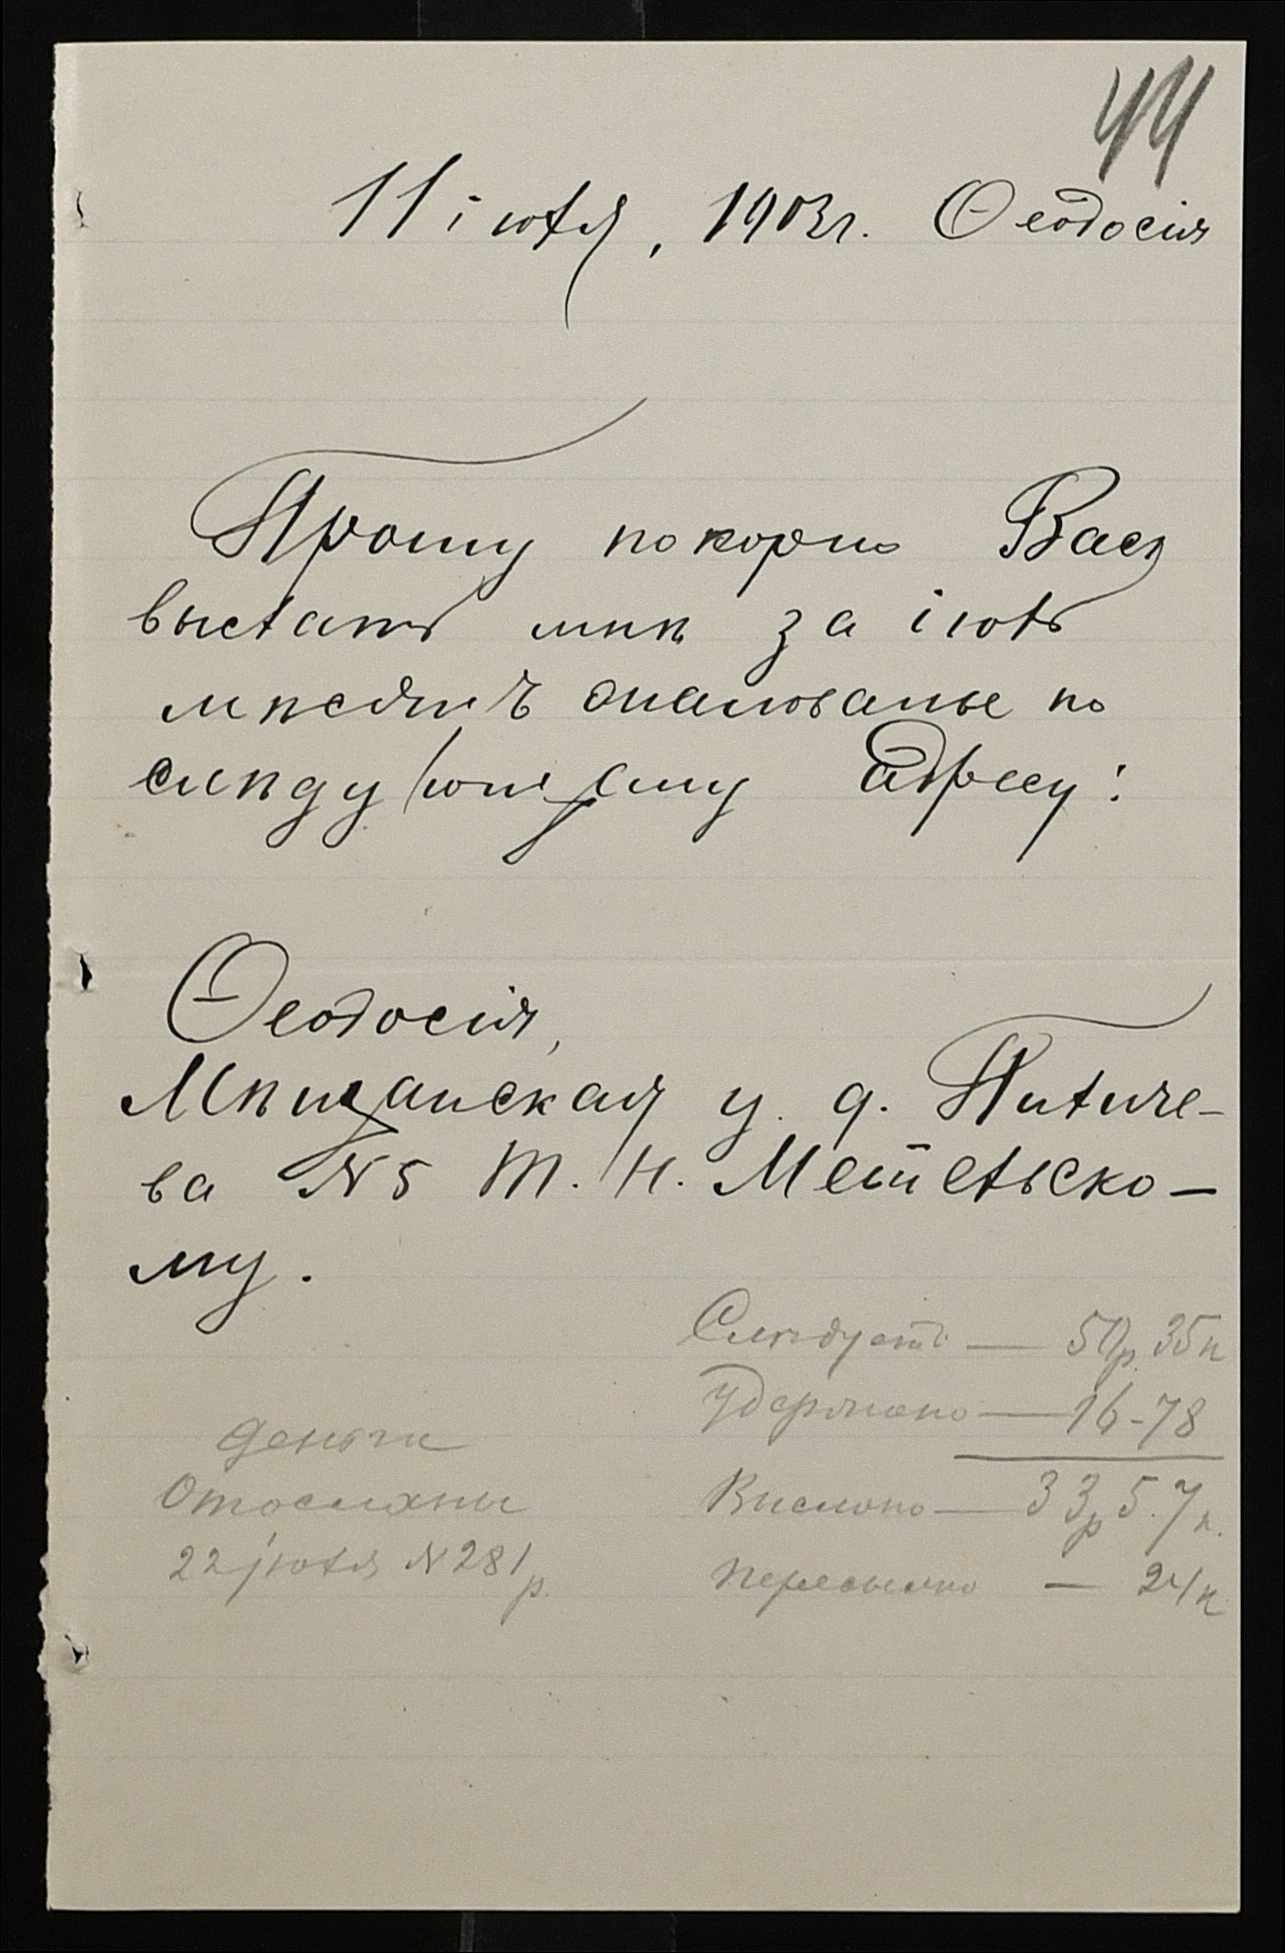 44
11 іюля, 1903 г. Ѳеодосія
Прошу покорно Васъ
выслать мнѣ за іюль
мѣсяцъ жалованье по
слѣдующему адресу:
Ѳеодосія,
Мѣщанская у. д.
ва № 5 Т. Н. Метельско-
му.
Слѣдуетъ — 50р. 35к
Удержано — 16-78
Выслано — 33р 57к.
пересылка — 24к
деньги
отосланы
22 іюля № 281 р.